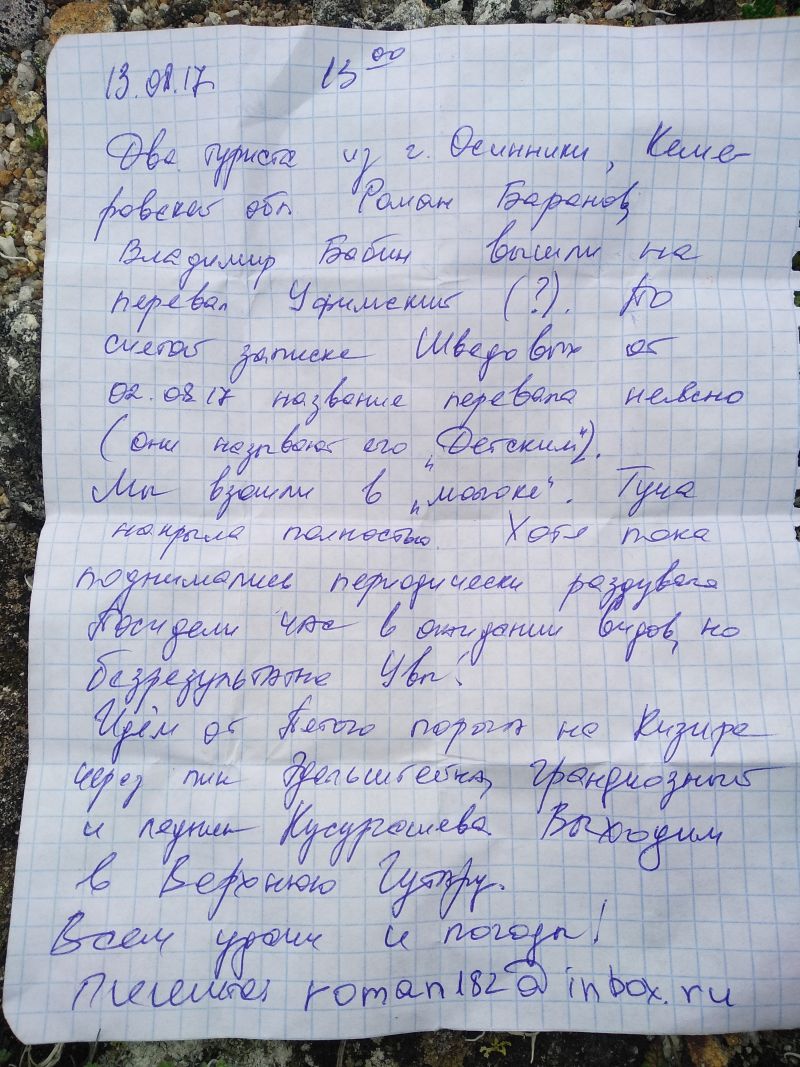 13.08.17 13 00
Два туриста из г. Осинники, Кеме-
ровской обл Роман Баранов,
Владимир Бабин вышли на
перевал Уфимский (?). По
снятой записке Шведовых от
02.08.17 название перевала неясно
(они называют его "Детским").
Мы взошли в "молоке". Туча
накрыла полностью. Хотя пока
поднимались периодически раздувало
Посидели час в ожидании видов, но
безрезультатно Увы!
Идём от Пятого порога на Кизире
через пик Эдельштейна, Грандиозный
и ледник Кусургашева. Выходим
в Верхнюю Гутару.
Всем удачи и погоды!
roman182@inbox.ru